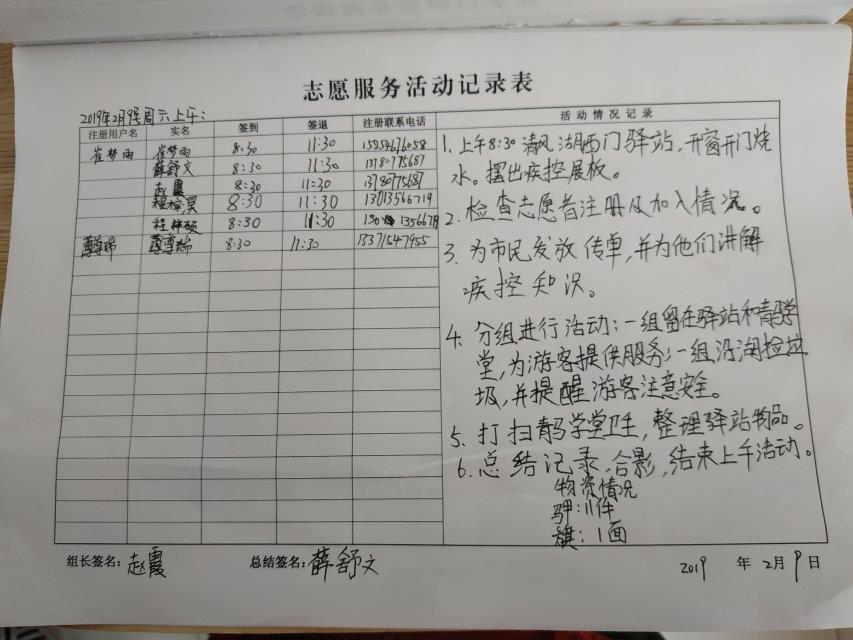 志愿服务活动记录表
2019年2月9号周六上午:
注册用户名 实名 签到 签退 注册联系电话 活动情况记录
崔梦雨 崔梦雨 8:30 11:30
薛舒文 8:30 11:30 13780775687
赵霞 8:30 11:30 13780775687
8:30 11:30 13013566719
8:30 11:30
8:30 11:30 13371547955
1. 上午8:30清风湖西门驿站,开窗开门烧
水。摆出疾控展板。
2. 检查志愿者注册及加入情况。
3. 为市民发放传单,并为他们讲解
疾控知识。
4. 分组进行活动:一组留在驿站和青马学
堂,为游客提供服务;一组沿湖捡垃
圾,并提醒游客注意安全。
5. 打扫青马学堂卫生,整理驿站物品。
6. 总结记录,合影,结束上午活动。
物资情况
:11件
旗:1面
组长签名: 赵霞 总结签名: 薛舒文 2019 年 2月 9日